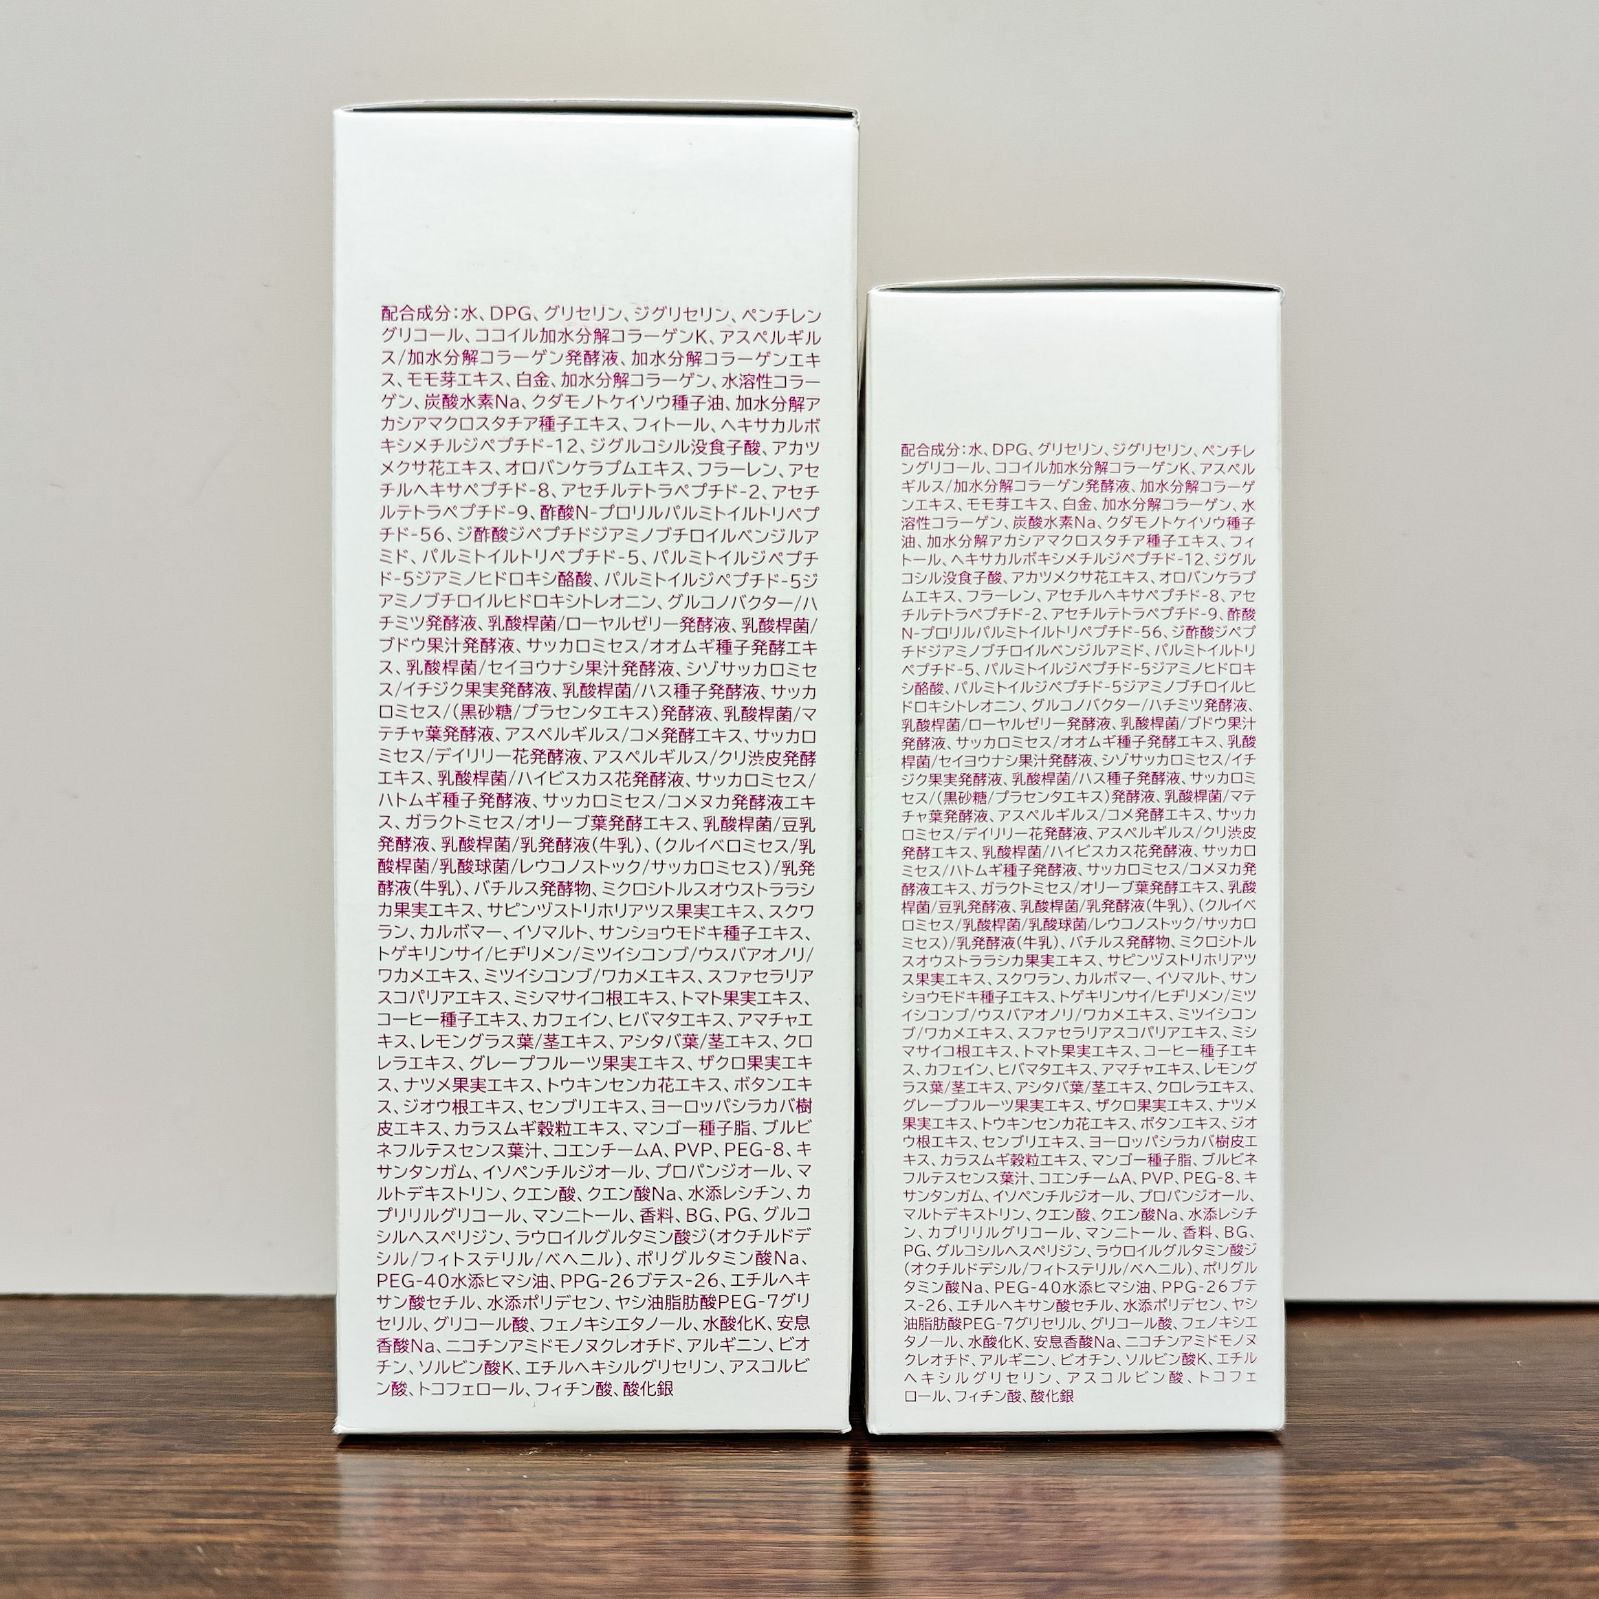 配合成分：水、DPG、グリセリン、ジグリセリン、ペンチレン
グリコール、ココイル加水分解コラーゲンK、アスペルギル
ス/加水分解コラーゲン発酵液、加水分解コラーゲンエキ
ス、モモ芽エキス、白金、加水分解コラーゲン、水溶性コラー
ゲン、炭酸水素Na、クダモノトケイソウ種子油、加水分解ア
カシアマクロスタチア種子エキス、フィトール、ヘキサカルボ
キシメチルジペプチド-12、ジグルコシル没食子酸、アカツ
メクサ花エキス、オロバンケラプムエキス、フラーレン、アセ
チルヘキサペプチド-8、アセチルテトラペプチド-2、アセチ
ルテトラペプチド-9、酢酸N-プロリルパルミトイルトリペプ
チド-56、ジ酢酸ジペプチドジアミノブチロイルベンジルア
ミド、パルミトイルトリペプチド-5、パルミトイルジペプチ
ド-5ジアミノヒドロキシ酪酸、パルミトイルジペプチド-5ジ
アミノブチロイルヒドロキシトレオニン、グルコノバクター/ハ
チミツ発酵液、乳酸桿菌/ローヤルゼリー発酵液、乳酸桿菌/
ブドウ果汁発酵液、サッカロミセス/オオムギ種子発酵エキ
ス、乳酸桿菌/セイヨウナシ果汁発酵液、シゾサッカロミセ
ス/イチジク果実発酵液、乳酸桿菌/ハス種子発酵液、サッカ
ロミセス/(黒砂糖/プラセンタエキス)発酵液、乳酸桿菌/マ
テチャ葉発酵液、アスペルギルス/コメ発酵エキス、サッカロ
ミセス/デイリリー花発酵液、アスペルギルス/クリ渋皮発酵
エキス、乳酸桿菌/ハイビスカス花発酵液、サッカロミセス/
ハトムギ種子発酵液、サッカロミセス/コメヌカ発酵液エキ
ス、ガラクトミセス/オリーブ葉発酵エキス、乳酸桿菌/豆乳
発酵液、乳酸桿菌/乳発酵液(牛乳)、(クルイベロミセス/乳
酸桿菌/乳酸球菌/レウコノストック/サッカロミセス)/乳発
酵液(牛乳)、バチルス発酵物、ミクロシトルスオウストララシ
カ果実エキス、サピンヅストリホリアツス果実エキス、スクワ
ラン、カルボマー、イソマルト、サンショウモドキ種子エキス、
トゲキリンサイ/ヒヂリメン/ミツイシコンブ/ウスバアオノリ/
ワカメエキス、ミツイシコンブ/ワカメエキス、スファセラリア
スコパリアエキス、ミシマサイコ根エキス、トマト果実エキス、
コーヒー種子エキス、カフェイン、ヒバマタエキス、アマチャエ
キス、レモングラス葉/茎エキス、アシタバ葉/茎エキス、クロ
レラエキス、グレープフルーツ果実エキス、ザクロ果実エキ
ス、ナツメ果実エキス、トウキンセンカ花エキス、ボタンエキ
ス、ジオウ根エキス、センブリエキス、ヨーロッパシラカバ樹
皮エキス、カラスムギ穀粒エキス、マンゴー種子脂、ブルビ
ネフルテスセンス葉汁、コエンチームA、PVP、PEG-8、キ
サンタンガム、イソペンチルジオール、プロパンジオール、マ
ルトデキストリン、クエン酸、クエン酸Na、水添レシチン、カ
プリリルグリコール、マンニトール、香料、BG、PG、グルコ
シルヘスペリジン、ラウロイルグルタミン酸ジ(オクチルドデ
シル/フィトステリル/ベヘニル)、ポリグルタミン酸Na、
PEG-40水添ヒマシ油、PPG-26ブテス-26、エチルヘキ
サン酸セチル、水添ポリデセン、ヤシ油脂肪酸PEG-7グリ
セリル、グリコール酸、フェノキシエタノール、水酸化K、安息
香酸Na、ニコチンアミドモノヌクレオチド、アルギニン、ビオ
チン、ソルビン酸K、エチルヘキシルグリセリン、アスコルビ
ン酸、トコフェロール、フィチン酸、酸化銀
配合成分：水、DPG、グリセリン、ジグリセリン、ペンチレ
ングリコール、ココイル加水分解コラーゲンK、アスペル
ギルス/加水分解コラーゲン発酵液、加水分解コラーゲ
ンエキス、モモ芽エキス、白金、加水分解コラーゲン、水
溶性コラーゲン、炭酸水素Na、クダモノトケイソウ種子
油、加水分解アカシアマクロスタチア種子エキス、フィ
トール、ヘキサカルボキシメチルジペプチド-12、ジグル
コシル没食子酸、アカツメクサ花エキス、オロバンケラプ
ムエキス、フラーレン、アセチルヘキサペプチド-8、アセ
チルテトラペプチド-2、アセチルテトラペプチド-9、酢酸
N-プロリルパルミトイルトリペプチド-56、ジ酢酸ジペプ
チドジアミノブチロイルベンジルアミド、パルミトイルトリ
ペプチド-5、パルミトイルジペプチド-5ジアミノヒドロキ
シ酪酸、パルミトイルジペプチド-5ジアミノブチロイルヒ
ドロキシトレオニン、グルコノバクター/ハチミツ発酵液、
乳酸桿菌/ローヤルゼリー発酵液、乳酸桿菌/ブドウ果汁
発酵液、サッカロミセス/オオムギ種子発酵エキス、乳酸
桿菌/セイヨウナシ果汁発酵液、シゾサッカロミセス/イチ
ジク果実発酵液、乳酸桿菌/ハス種子発酵液、サッカロミ
セス/(黒砂糖/プラセンタエキス)発酵液、乳酸桿菌/マテ
チャ葉発酵液、アスペルギルス/コメ発酵エキス、サッカ
ロミセス/デイリリー花発酵液、アスペルギルス/クリ渋皮
発酵エキス、乳酸桿菌/ハイビスカス花発酵液、サッカロ
ミセス/ハトムギ種子発酵液、サッカロミセス/コメヌカ発
酵液エキス、ガラクトミセス/オリーブ葉発酵エキス、乳酸
桿菌/豆乳発酵液、乳酸桿菌/乳発酵液(牛乳)、(クルイベ
ロミセス/乳酸桿菌/乳酸球菌/レウコノストック/サッカロ
ミセス)/乳発酵液(牛乳)、バチルス発酵物、ミクロシトル
スオウストララシカ果実エキス、サピンヅストリホリアツ
ス果実エキス、スクワラン、カルボマー、イソマルト、サン
ショウモドキ種子エキス、トゲキリンサイ/ヒヂリメン/ミツ
イシコンブ/ウスバアオノリ/ワカメエキス、ミツイシコン
ブ/ワカメエキス、スファセラリアスコパリアエキス、ミシ
マサイコ根エキス、トマト果実エキス、コーヒー種子エキ
ス、カフェイン、ヒバマタエキス、アマチャエキス、レモング
ラス葉/茎エキス、アシタバ葉/茎エキス、クロレラエキス、
グレープフルーツ果実エキス、ザクロ果実エキス、ナツメ
果実エキス、トウキンセンカ花エキス、ボタンエキス、ジオ
ウ根エキス、センブリエキス、ヨーロッパシラカバ樹皮エ
キス、カラスムギ穀粒エキス、マンゴー種子脂、ブルビネ
フルテスセンス葉汁、コエンチームA、PVP、PEG-8、キ
サンタンガム、イソペンチルジオール、プロパンジオール、
マルトデキストリン、クエン酸、クエン酸Na、水添レシチ
ン、カプリリルグリコール、マンニトール、香料、BG、
PG、グルコシルヘスペリジン、ラウロイルグルタミン酸ジ
(オクチルドデシル/フィトステリル/ベヘニル)、ポリグル
タミン酸Na、PEG-40水添ヒマシ油、PPG-26ブテ
ス-26、エチルヘキサン酸セチル、水添ポリデセン、ヤシ
油脂肪酸PEG-7グリセリル、グリコール酸、フェノキシエ
タノール、水酸化K、安息香酸Na、ニコチンアミドモノヌ
クレオチド、アルギニン、ビオチン、ソルビン酸K、エチル
ヘキシルグリセリン、アスコルビン酸、トコフェ
ロール、フィチン酸、酸化銀